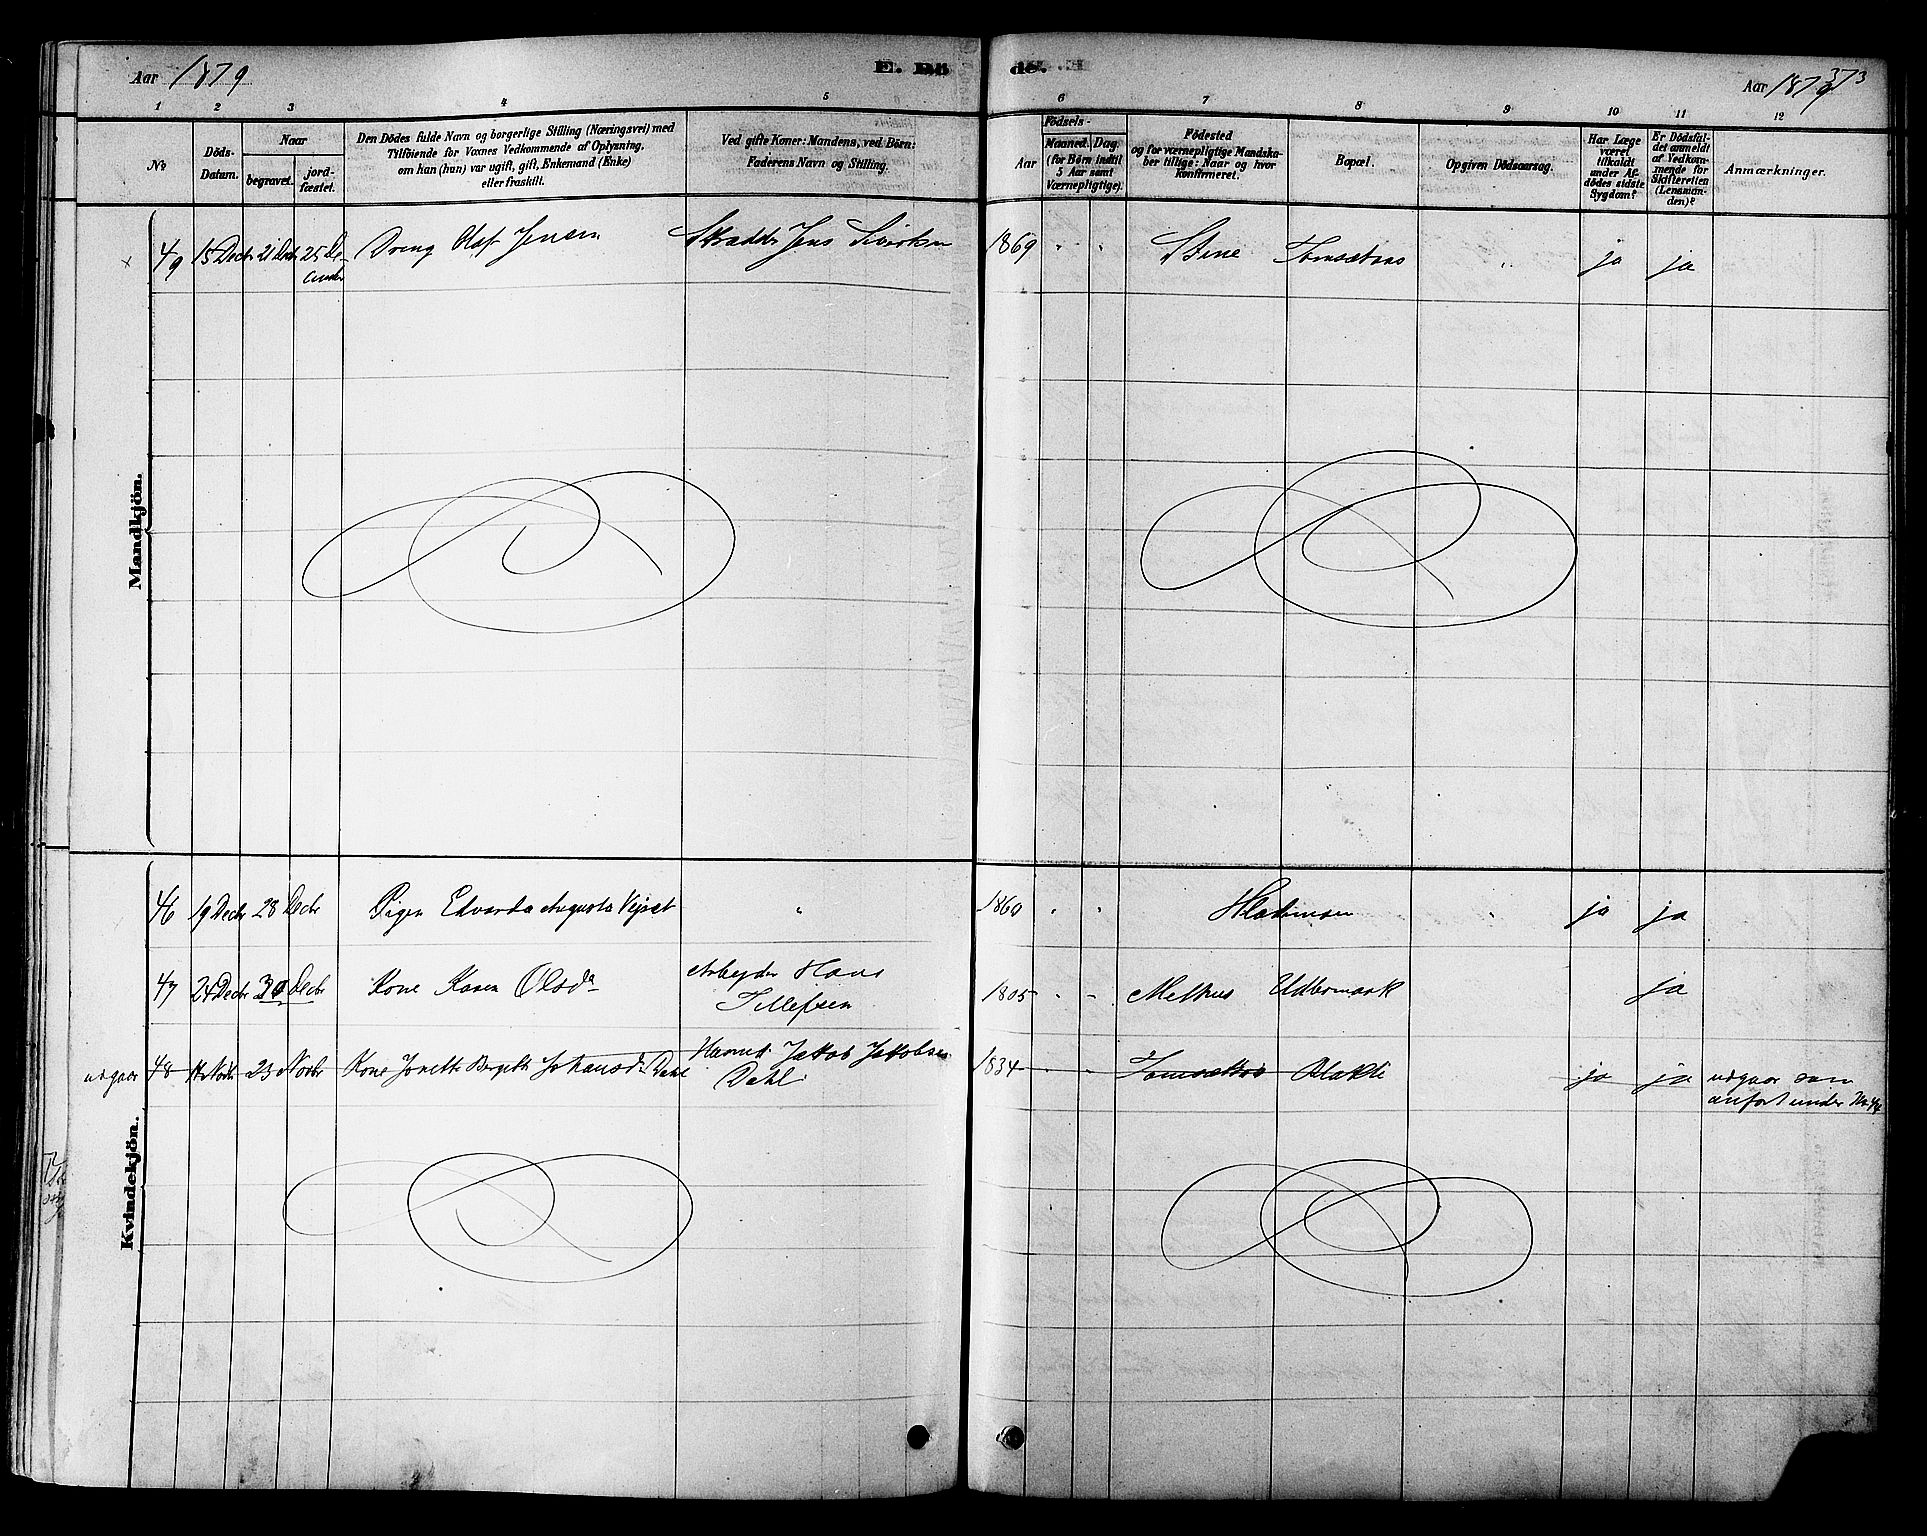 Aar 1879
E. Dö
de.
Aar 1879
373
1 2 3 4 5
6 7 8 9 10 11 12
No
Döds-Datum.
Naar
begravet.
jord-fæstet.
Den Dödes fulde Navn og borgerlige Stilling (Næringsvei) med
Tilföiende for Voxnes Vedkommende af Oplysning,
om han (hun) var ugift, gift, Enkemand (Enke)
eller fraskilt.
Ved gifte Koner: Mandens, ved Börn:
Faderens Navn og Stilling.
Födsels-
Aar
Maaned. Dag.
(for Börn indtil
5 Aar samt
Værnepligtige).
Födested
og for værnepligtige Mandska-
ber tillige: Naar og hvor
konfirmeret.
Bopæl.
Opgiven Dödsaarsag.
Har Læge
været
tilkaldt
under Af-
dödes sidste
Sygdom?
Er Dödsfal-
det anmeldt
af Vedkom-
mende for
Skifteretten
(Lensman-
den)?
Anmærkninger.
Mandkjön.
49 15 Decbr 21 Decbr 25 De-
cember
Dreng Olaf Jensen
Jens
1869 " " " ja ja
Kvindekjön.
46 19 Decbr 28 Decbr Pigen Edvarda Augusta " 1860 " " " ja ja
47 24 Decbr 30 Decbr Kone Karen Olsdr Arbeider Hans
Tillefsen
1805 " " Melhus ja
udgaar 48 23 Novbr Kone Johansdr Dahl
Jakob Jakobsen
Dahl
1834 " " Blakli ja ja udgaar som
anført under No 44